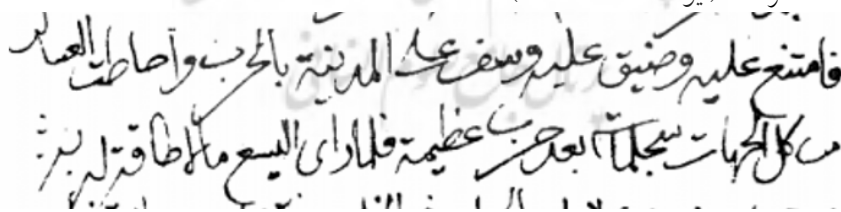 فامتنع عليه وضيق عليه وسف على المدينة بالحرب واحاطت العساكر
من كل الجهات سجلماسة بعد حرب عظيمة فلما راى اليسع ما لا طاقة له به